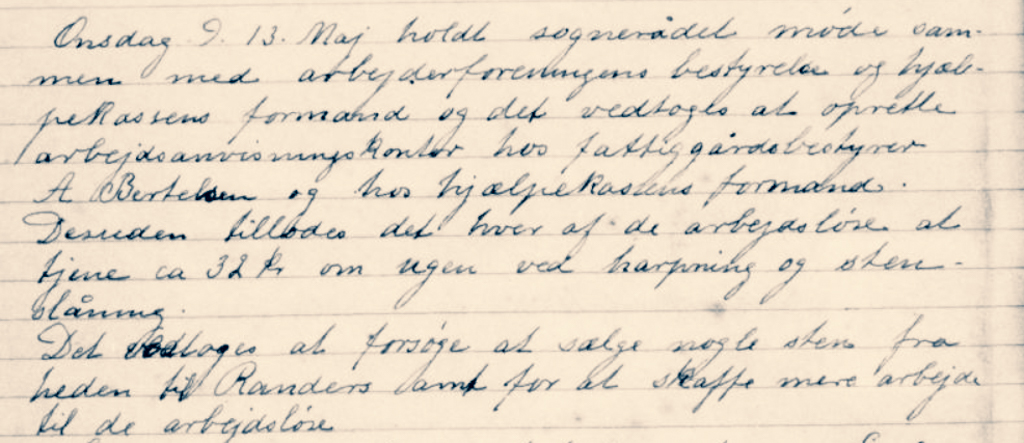 Onsdag d. 13. Maj holdt sognerådet møde sam-
men med arbejderforeningens bestyrelse og hjæl-
pekassens formand og det vedtoges at oprette
arbejdsanvisningskontor hos fattiggårdsbestyrer
A Bertelsen og hos hjælpekassens formand.
Desuden tillodes det hver af de arbejdsløse at
tjene ca 32 kr om ugen ved harpning og sten-
slåning.
Det vedtoges at forsøge at sælge nogle sten fra
heden til Randers amt for at skaffe mere arbejde
til de arbejdsløse